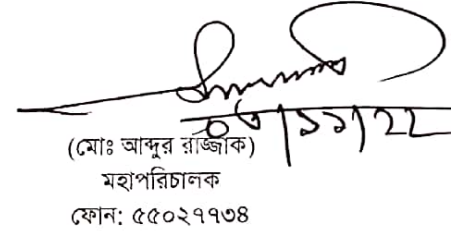 ০৩/১১/২২
(মোঃ আব্দুর রাজ্জাক)
মহাপরিচালক
ফোন: ৫৫০২৭৭৩৪